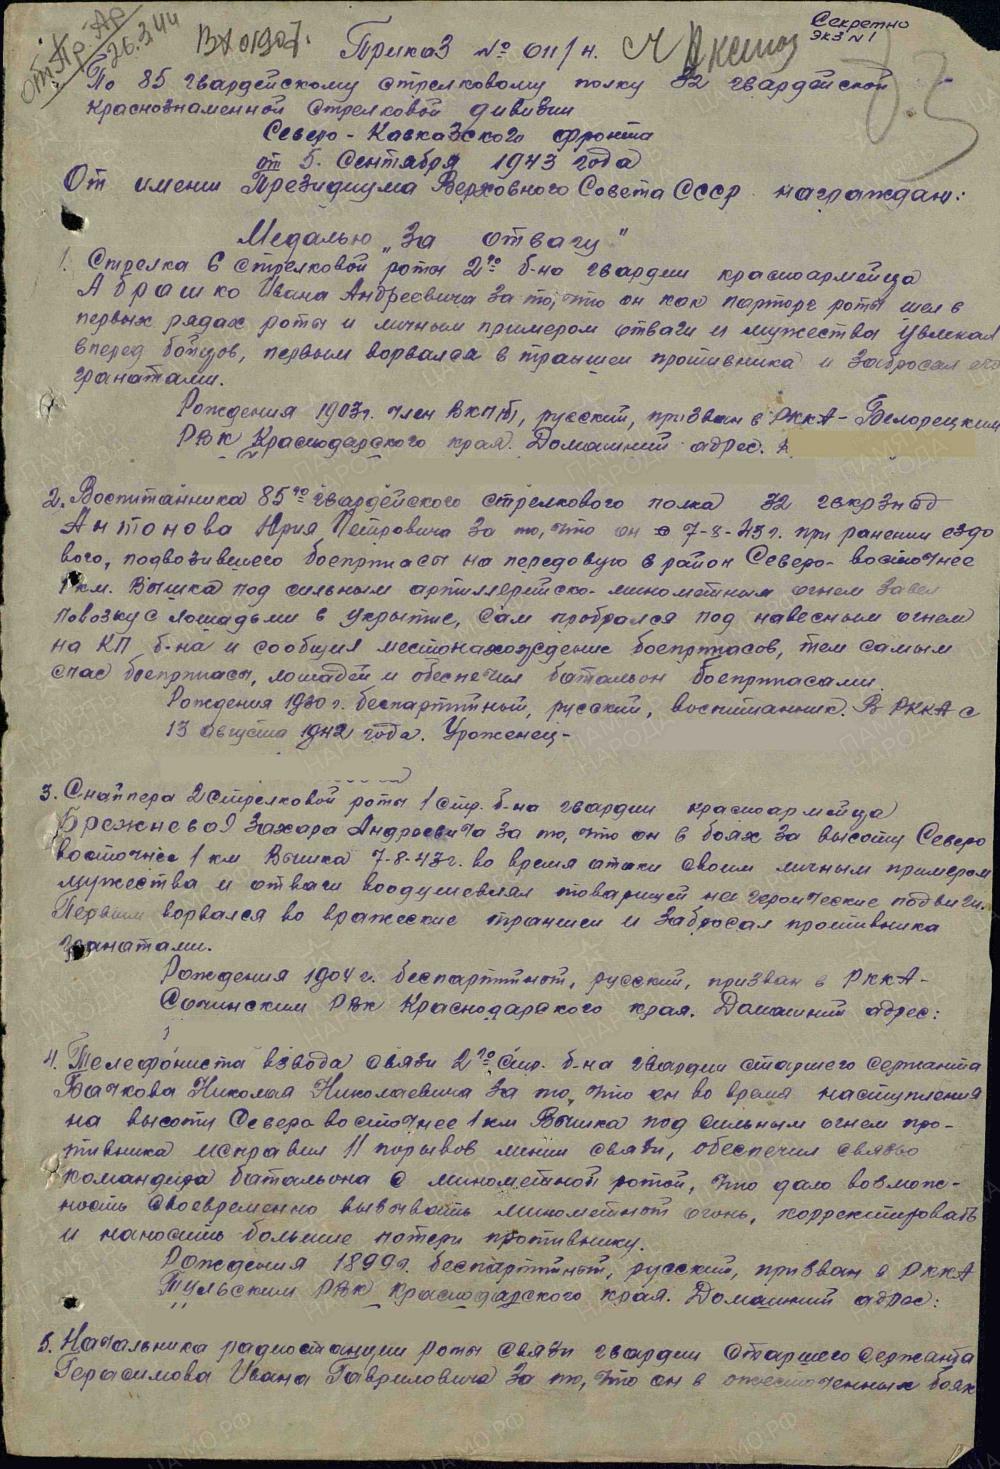 26.3.44
Секретно
Экз № 1
Приказ № 011/н.
По 85 гвардейскому стрелковому полку 32 гвардейской
краснознаменной стрелковой дивизии
Северо-Кавказского фронта
от 5. Сентября 1943 года
От имени Президиума Верховного Совета СССР награждаю:
Медалью „За отвагу"
1. Стрелка 6 стрелковой роты 2го б-на гвардии красноармейца
Абрашко Ивана Андреевича за то, что он как парторг роты шел в
первых рядах роты и личным примером отваги и мужества увлекал
вперед бойцов, первым ворвался в траншеи противника и забросал его
гранатами.
Рождения 1903 г. член ВКП(б), русский, призван в РККА - Белорецким
РВК Краснодарского края. Домашний адрес.
2. Воспитанника 85го гвардейского стрелкового полка 32 гвкрзнсд
Антонова Юрия Петровича за то, что он 7-8-43 г. при ранении ездо
вого, подвозившего боеприпасы на передовую в район Северо-восточнее
1 км. Вышка под сильным артиллерийско-минометным огнем завел
повозку с лошадьми в укрытие, сам пробрался под навесным огнем
на КП б-на и сообщил местонахождение боеприпасов, тем самым
спас боеприпасы, лошадей и обеспечил батальон боеприпасами.
Рождения 1930 г. беспартийный, русский, воспитанник. В РККА с
13 августа 1942 года. Уроженец-
3. Снайпера 2 стрелковой роты 1 стр. б-на гвардии красноармейца
Брежнева Захара Андреевича за то, что он в боях за высоту Северо
восточнее 1 км Вышка 7-8-43 г. во время атаки своим личным примером
мужества и отваги воодушевлял товарищей на героические подвиги.
Первым ворвался во вражеские траншеи и забросал противника
гранатами.
Рождения 1904 г. беспартийный, русский, призван в РККА-
Сочинским РВК Краснодарского края. Домашний адрес:
4. Телефониста взвода связи 2го Стр. б-на гвардии старшего сержанта
Бачкова Николая Николаевича за то, что он во время наступления
на высоту Северо восточнее 1 км Вышка под сильным огнем про-
тивника исправил 11 порывов линии связи, обеспечил связью
командира батальона с минометной ротой, что дало возмож-
ность своевременно вызывать минометный огонь, корректировать
и наносить большие потери противнику.
Рождения 1899 г. беспартийный, русский, призван в РККА
Тульским РВК Краснодарского края. Домашний адрес:
5. Начальника радиостанции роты связи гвардии Старшего Сержанта
Герасимова Ивана Гавриловича за то, что он в ожесточенных боях